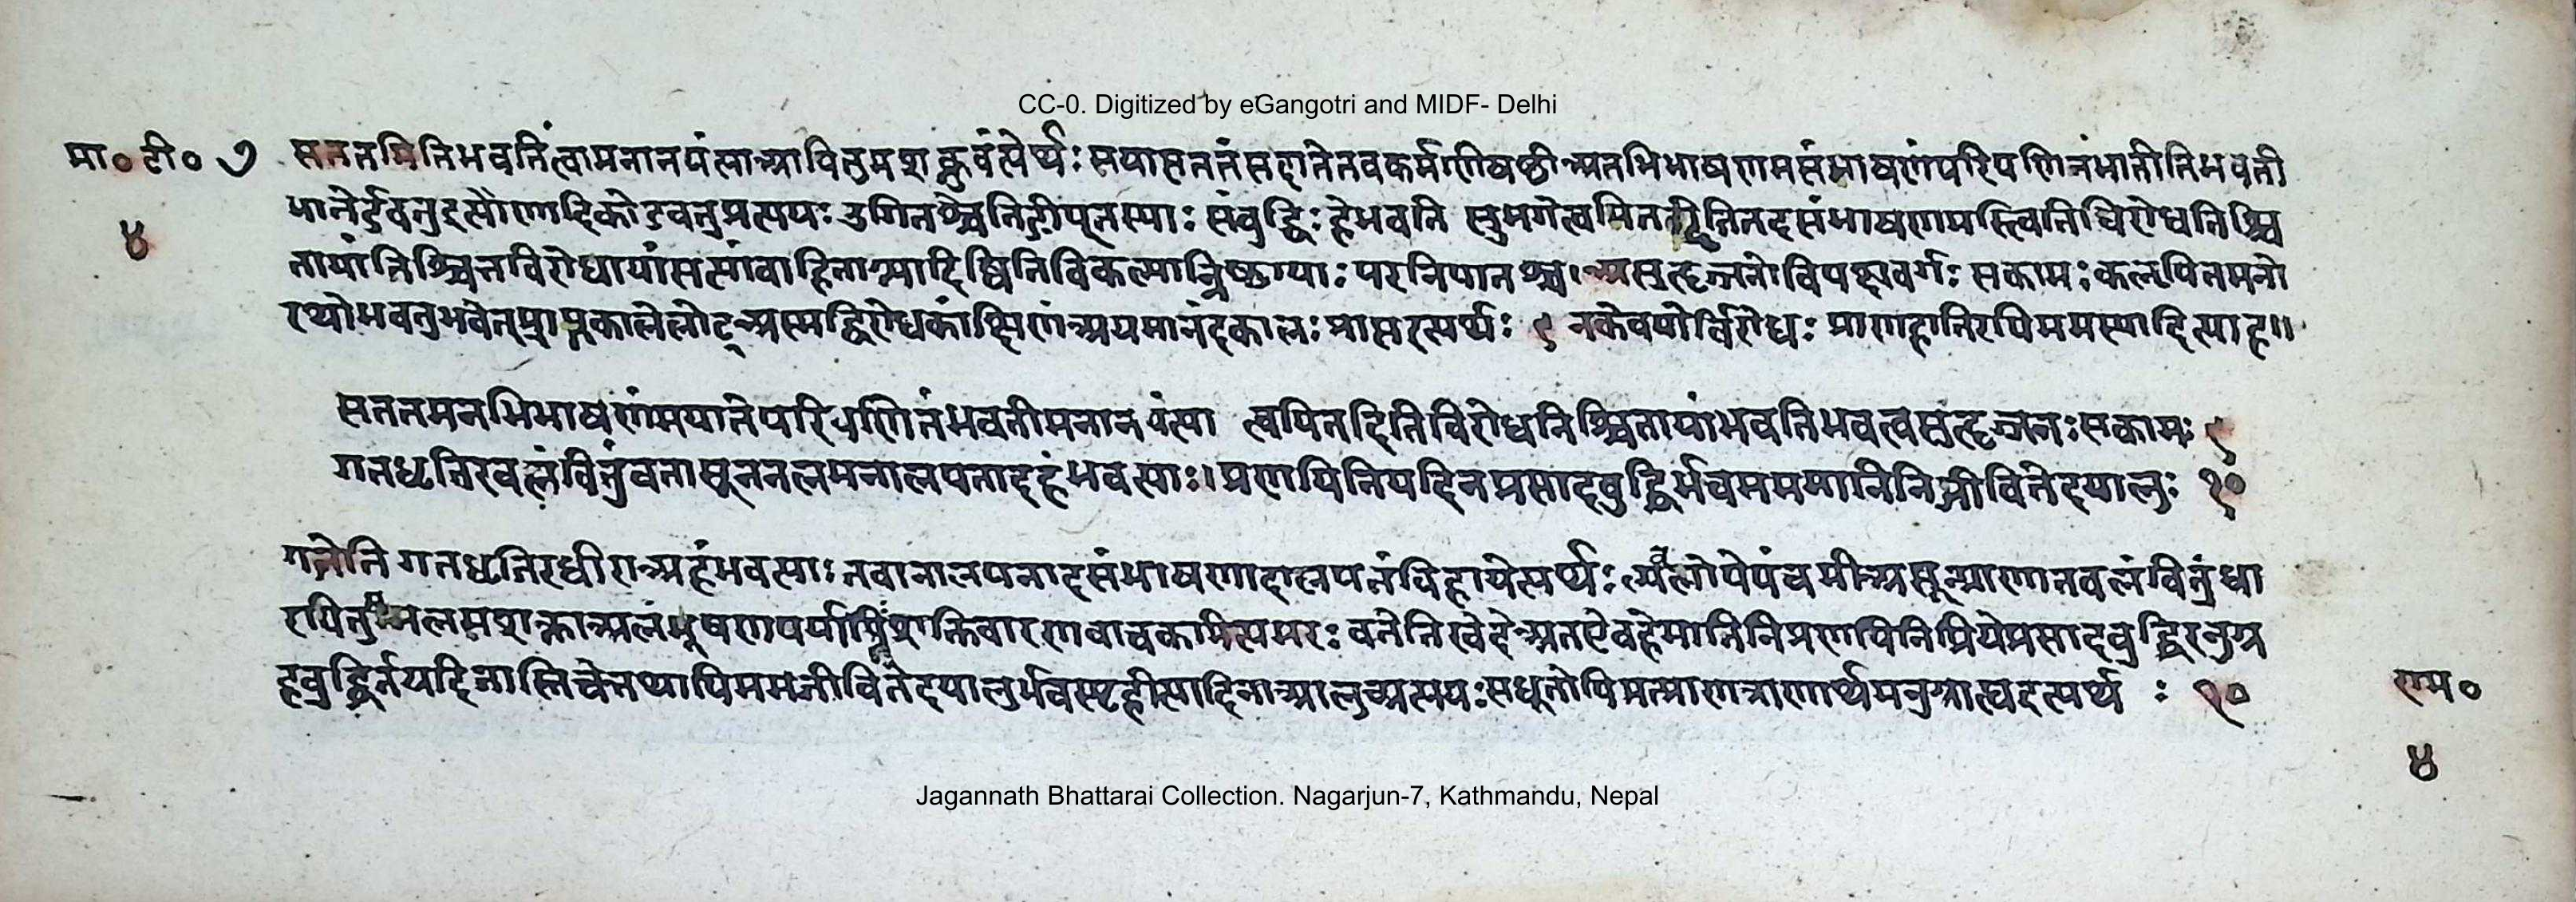 CC-0. Digitized by eGangotri and MIDF- Delhi
मा० टी० ७ सततमितिभवतिंत्वामनानयंत्याआवितुमशक्नुवंत्येर्थः सयासततंसदातेतवकर्मणीषष्ठीअनभिभाषणमसंभाषणंपरिपणितंमातीतिभवती
४ भातेर्डवतुइत्यौणादिकोडवतुप्रत्ययः उगितश्चेतिङीप्तस्याः संबुद्धिः हेभवति सुभगेत्वयितत् इतितदसंभाषणमस्त्वितिविरोधनिश्चि
तायांनिश्चितविरोधायांसत्सांवाहितान्मादिष्वितिविकल्पान्निष्ठाया: परनिपातश्च।असहृज्जनोविपक्षवर्गः सकामः कलपितमनो
रथोभवतुभवेत्प्राप्तकालेलोट्अस्मद्विरोधकांक्षिणांअयमानंदकालः प्राप्तइत्यर्थः ९ नकेवयोर्विरोधः प्राणहानिरपिममस्यादित्याह॥
सततमनभिभाषणंमयातेपरिपणितंभवतीमनानयंत्या त्वयितदितिविरोधनिश्चितायांभवतिभवत्वसुहृज्जनःसकामः ९
गतधृतिरवलंवितुंवतासूननलमनालपनादहंभवत्याः।प्रणयिनियदिनप्रसादवुद्धिर्भवममममानिनिजीवितेदयालुः १०
गतेति गतधृतिरधीराअहंभवत्याः तवानालपनादसंभाषणादालपनंविहायेत्यर्थः ल्यव्लोपेपंचमीअसून्प्राणानवलंवितुंधा
रयितुमनलमशक्ताअलंभूषणपर्याप्तिशक्तिवारणवाचकमित्यमरः वतेतिखेदेअतऐवहेमानिनिप्रणयिनिप्रियेप्रसादवुद्धिरनुग्र
हवुद्धिर्नयदिनास्तिचेत्तथापिममजीवितेदयालुर्भवस्पृहीत्यादिनाआलुच्प्रत्ययःसधूतोपिमत्प्राणत्राणार्थमनुग्राह्यइत्यर्थ : १०
राम०
४
Jagannath Bhattarai Collection. Nagarjun-7, Kathmandu, Nepal